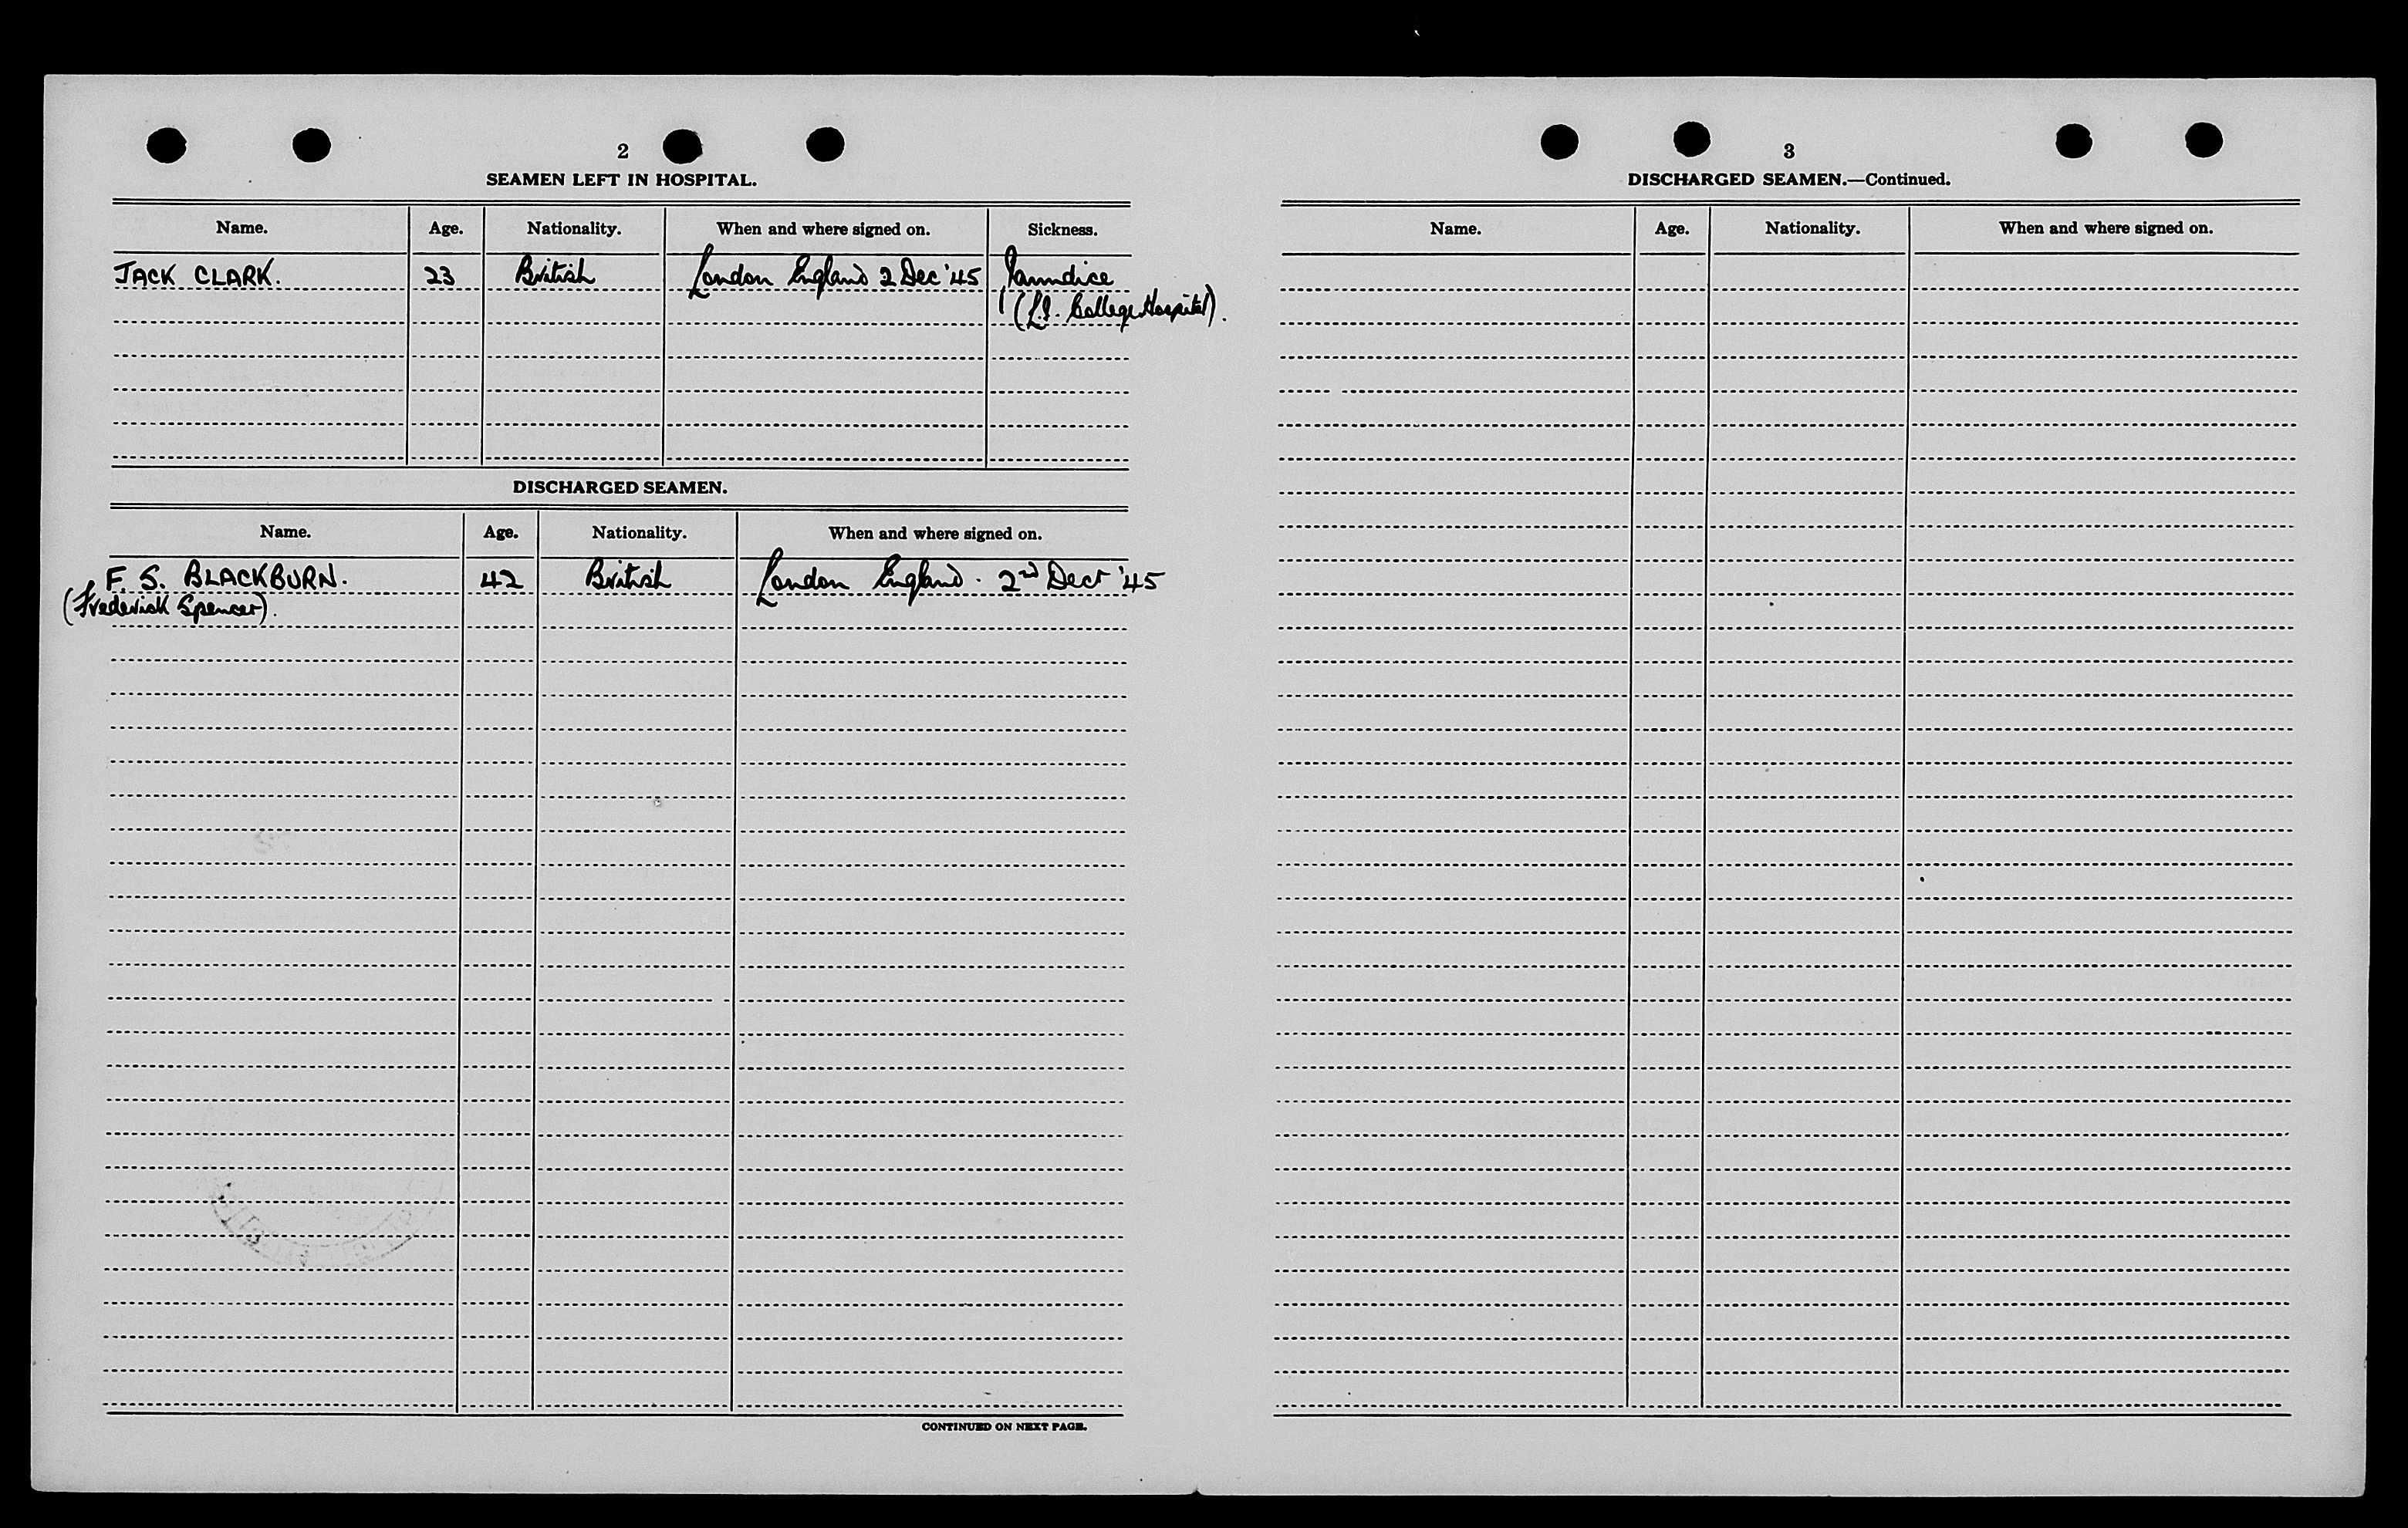 2
SEAMEN LEFT IN HOSPITAL.
Name. Age. Nationality. When and where signed on. Sickness.
JACK CLARK. 23 British London England 2 Dec '45 Jaundice
(L.I. College Hospital).
DISCHARGED SEAMEN.
Name. Age. Nationality. When and where signed on.
F. S. BLACKBURN. 42 British London England. 2nd Decr '45
(Frederick Spencer).
CONTINUED ON NEXT PAGE.
3
DISCHARGED SEAMEN.—Continued.
Name. Age. Nationality. When and where signed on.